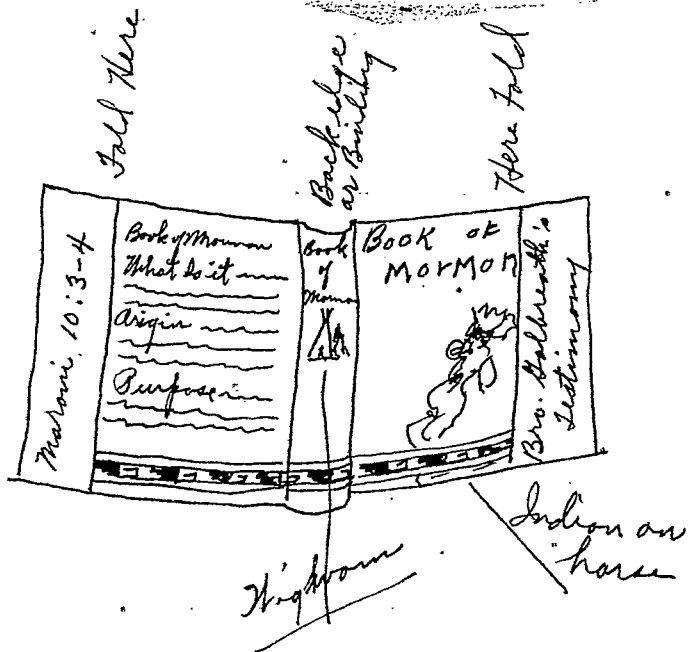 Fold Here
Back edge
or Binding
Here Fold
Maroni, 10:3-4
Book of Mormon
What Is it
Origin
Purpose
Book
of
Mormon
Book of
Mormon
Bro. Galbreath's
Testimony
Indian on
horse
Wigwam